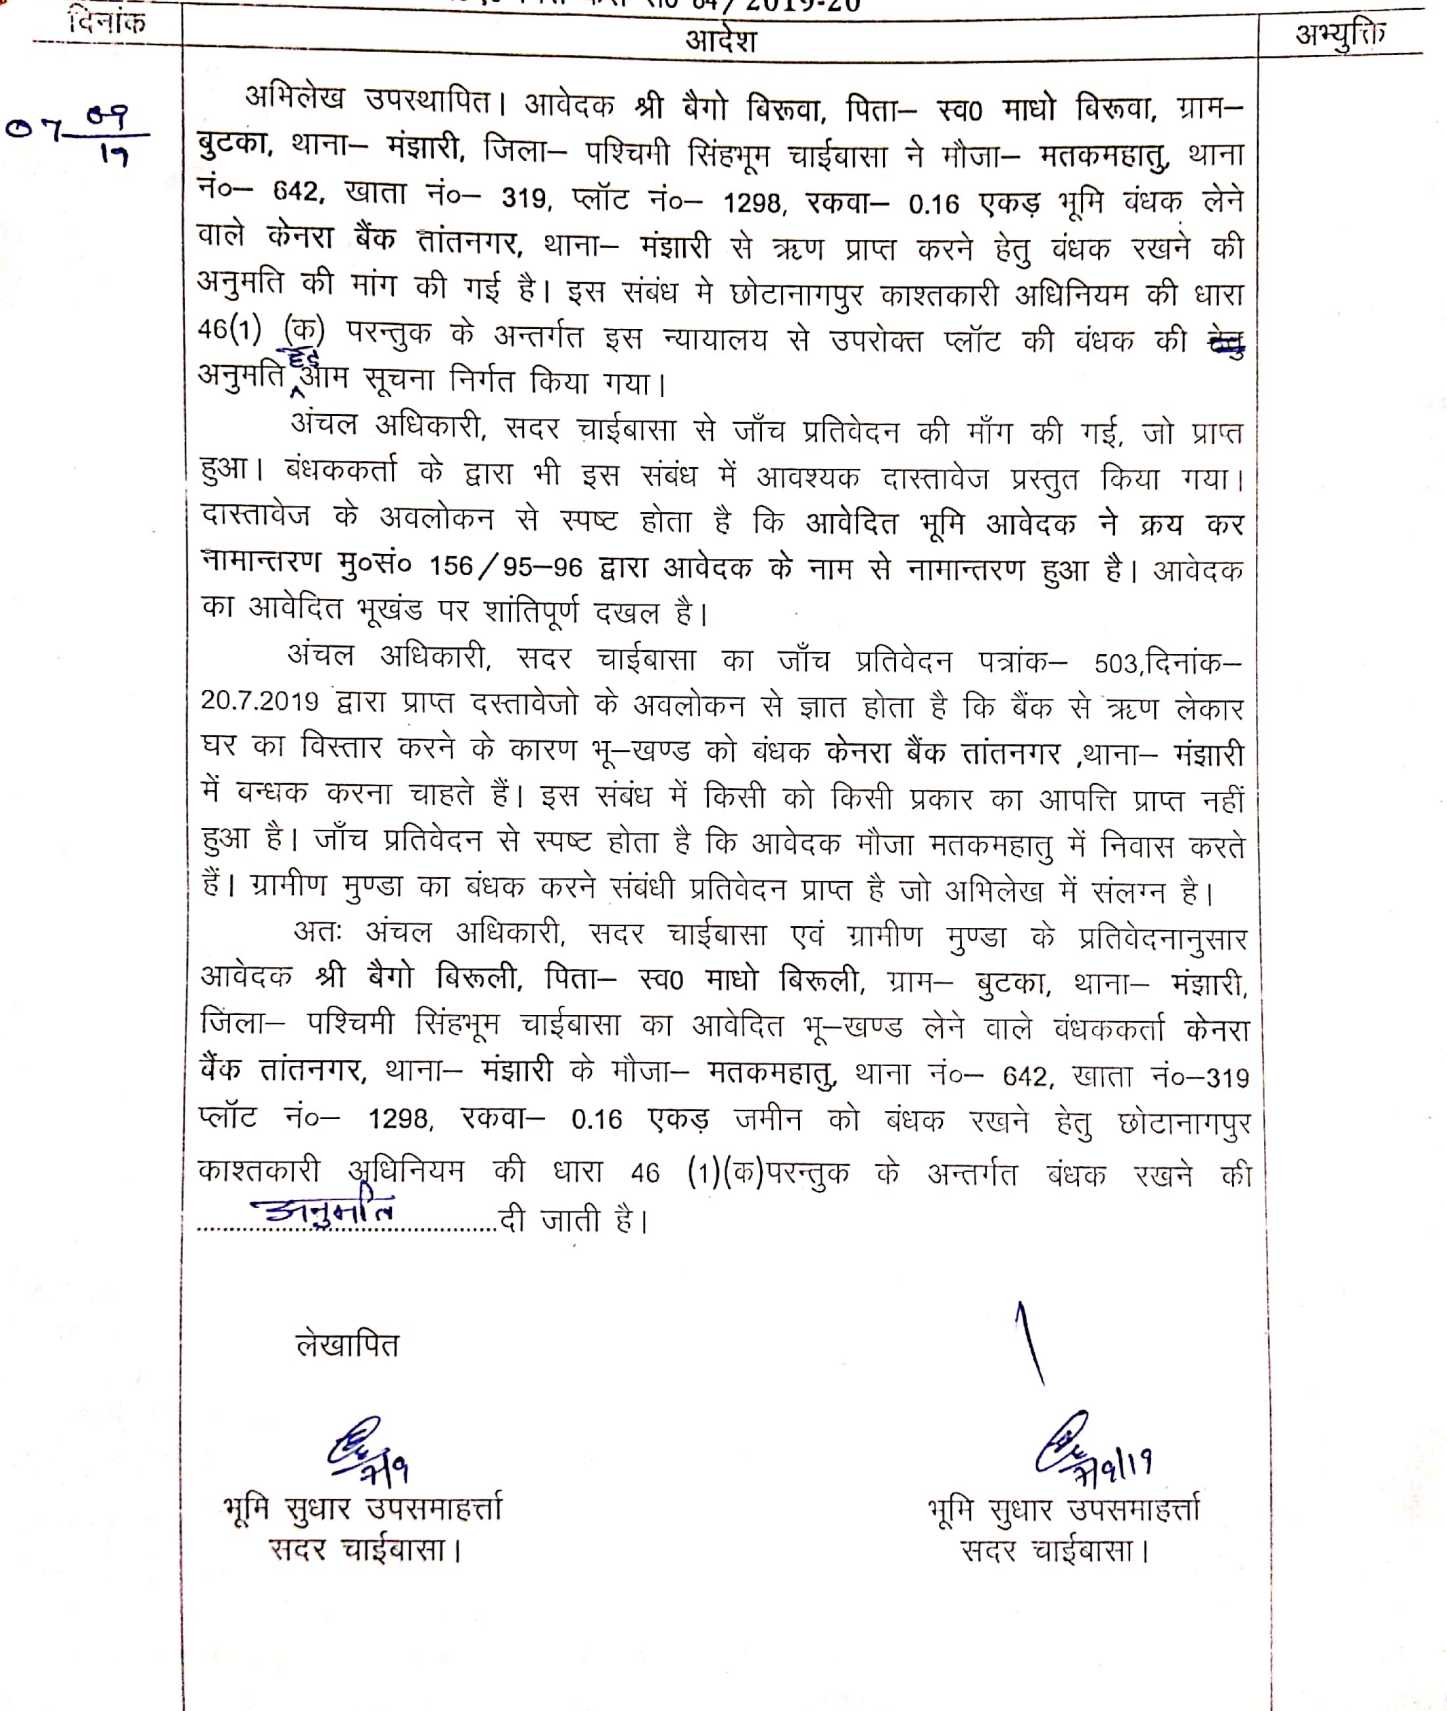 84/2019-20
दिनांक
आदेश
अभ्युक्ति
07 09
19
अभिलेख उपस्थापित। आवेदक श्री बैगो बिरूवा, पिता– स्व0 माधो बिरूवा, ग्राम–
बुटका, थाना– मंझारी, जिला– पश्चिमी सिंहभूम चाईबासा ने मौजा– मतकमहातु, थाना
नं०– 642, खाता नं०– 319, प्लॉट नं०– 1298, रकवा– 0.16 एकड़ भूमि बंधक लेने
वाले केनरा बैंक तांतनगर, थाना– मंझारी से ऋण प्राप्त करने हेतु बंधक रखने की
अनुमति की मांग की गई है। इस संबंध मे छोटानागपुर काश्तकारी अधिनियम की धारा
46(1) (क) परन्तुक के अन्तर्गत इस न्यायालय से उपरोक्त प्लॉट की बंधक की हेतु
अनुमति हेतु आम सूचना निर्गत किया गया।
अंचल अधिकारी, सदर चाईबासा से जाँच प्रतिवेदन की माँग की गई, जो प्राप्त
हुआ। बंधककर्ता के द्वारा भी इस संबंध में आवश्यक दास्तावेज प्रस्तुत किया गया।
दास्तावेज के अवलोकन से स्पष्ट होता है कि आवेदित भूमि आवेदक ने क्रय कर
नामान्तरण मु०सं० 156/95–96 द्वारा आवेदक के नाम से नामान्तरण हुआ है। आवेदक
का आवेदित भूखंड पर शांतिपूर्ण दखल है।
अंचल अधिकारी, सदर चाईबासा का जाँच प्रतिवेदन पत्रांक– 503,दिनांक–
20.7.2019 द्वारा प्राप्त दस्तावेजो के अवलोकन से ज्ञात होता है कि बैंक से ऋण लेकार
घर का विस्तार करने के कारण भू–खण्ड को बंधक केनरा बैंक तांतनगर ,थाना– मंझारी
में बन्धक करना चाहते हैं। इस संबंध में किसी को किसी प्रकार का आपत्ति प्राप्त नहीं
हुआ है। जाँच प्रतिवेदन से स्पष्ट होता है कि आवेदक मौजा मतकमहातु में निवास करते
हैं। ग्रामीण मुण्डा का बंधक करने संबंधी प्रतिवेदन प्राप्त है जो अभिलेख में संलग्न है।
अतः अंचल अधिकारी, सदर चाईबासा एवं ग्रामीण मुण्डा के प्रतिवेदनानुसार
आवेदक श्री बैगो बिरूली, पिता– स्व0 माधो बिरूली, ग्राम– बुटका, थाना– मंझारी,
जिला– पश्चिमी सिंहभूम चाईबासा का आवेदित भू–खण्ड लेने वाले बंधककर्ता केनरा
बैंक तांतनगर, थाना– मंझारी के मौजा– मतकमहातु, थाना नं०– 642, खाता नं०–319
प्लॉट नं०– 1298, रकवा– 0.16 एकड़ जमीन को बंधक रखने हेतु छोटानागपुर
काश्तकारी अधिनियम की धारा 46 (1)(क)परन्तुक के अन्तर्गत बंधक रखने की
अनुमति दी जाती है।
लेखापित
7/9
7/9/19
भूमि सुधार उपसमाहर्त्ता
सदर चाईबासा।
भूमि सुधार उपसमाहर्त्ता
सदर चाईबासा।